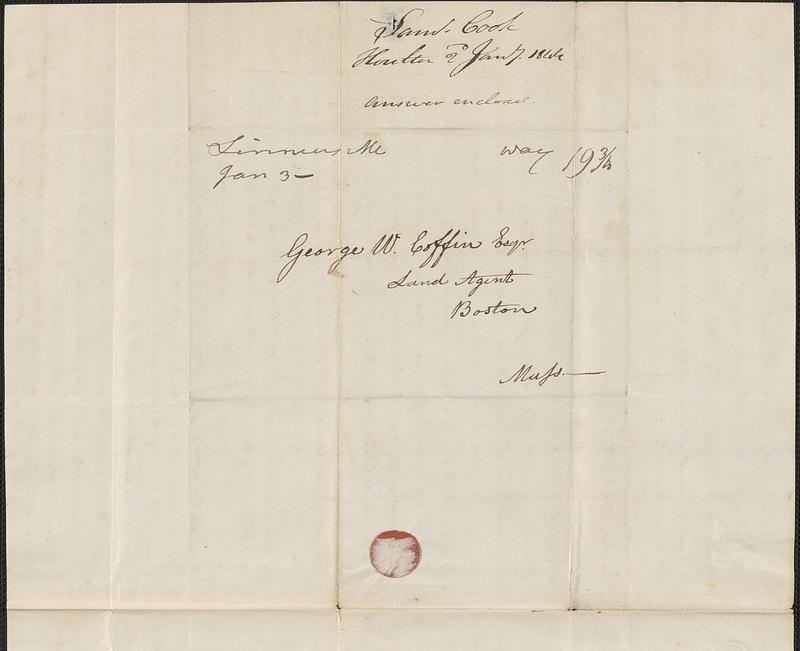 Saml. Cook
Houlton 2d Jany. 1844
answer enclosed
Linneus Me
way 19 3/4
Jan 3
George W. Coffin Esqr.
Land Agent
Boston
Mass.